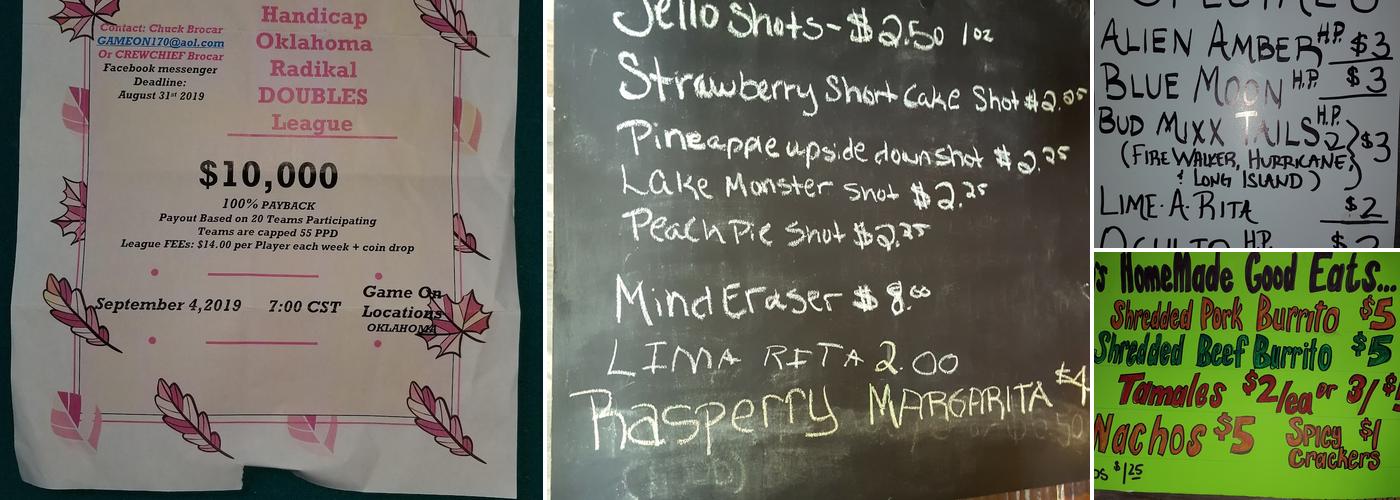 Handicap
Oklahoma
Radikal
DOUBLES
League
Contact: Chuck Brocar
GAMEON170@aol.com
Or CREWCHIEF Brocar
Facebook messenger
Deadline:
August 31st 2019
$10,000
100% PAYBACK
Payout Based on 20 Teams Participating
Teams are capped 55 PPD
League FEEs: $14.00 per Player each week + coin drop
September 4,2019 7:00 CST
Game On
Locations
OKLAHOMA
Jello Shots - $2.50 1oz
Strawberry Short Cake Shot $2.25
Pineapple upside down shot $2.25
Lake Monster shot $2.25
Peach Pie Shot $2.25
Mind Eraser $8.00
LIMA RITA 2.00
Rasperry MARGARITA $4
ALIEN AMBER H.P. $3
BLUE MOON H.P. $3
BUD MIXX TAILS H.P. $3
(FIRE WALKER, HURRICANE,
& LONG ISLAND)
LIME·A·RITA $2
OCULTO H.P.
HomeMade Good Eats...
Shredded Pork Burrito $5
Shredded Beef Burrito $5
Tamales $2/ea or 3/$5
Nachos $5 Spicy $1
Crackers
$1.25